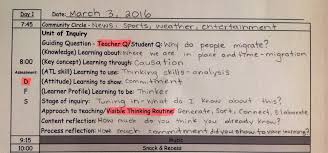 Day 1 Date: March 3, 2016
7:45 Community Circle - News, Sports, weather, entertainment
Unit of Inquiry
Guiding Question - Teacher Q/Student Q: Why do people migrate?
(Knowledge) Learning about: Where we are in place and time - migration
8:00 (Key concept) Learning through Causation
Assessment: (ATL skill) Learning to use: Thinking skills - analysis
D (Attitude) Learning to show: Commitment
F (Learner Profile) Learning to be: Thinker
S Stage of inquiry: Tuning in - What do I know about this?
Approach to teaching/Visible Thinking Routine: Generate, Sort, Connect, Elaborate
Content reflection: How much do you think you already know?
Process reflection: How much commitment did you show to your learning?
9:15 Music
10:00 Snack & Recess